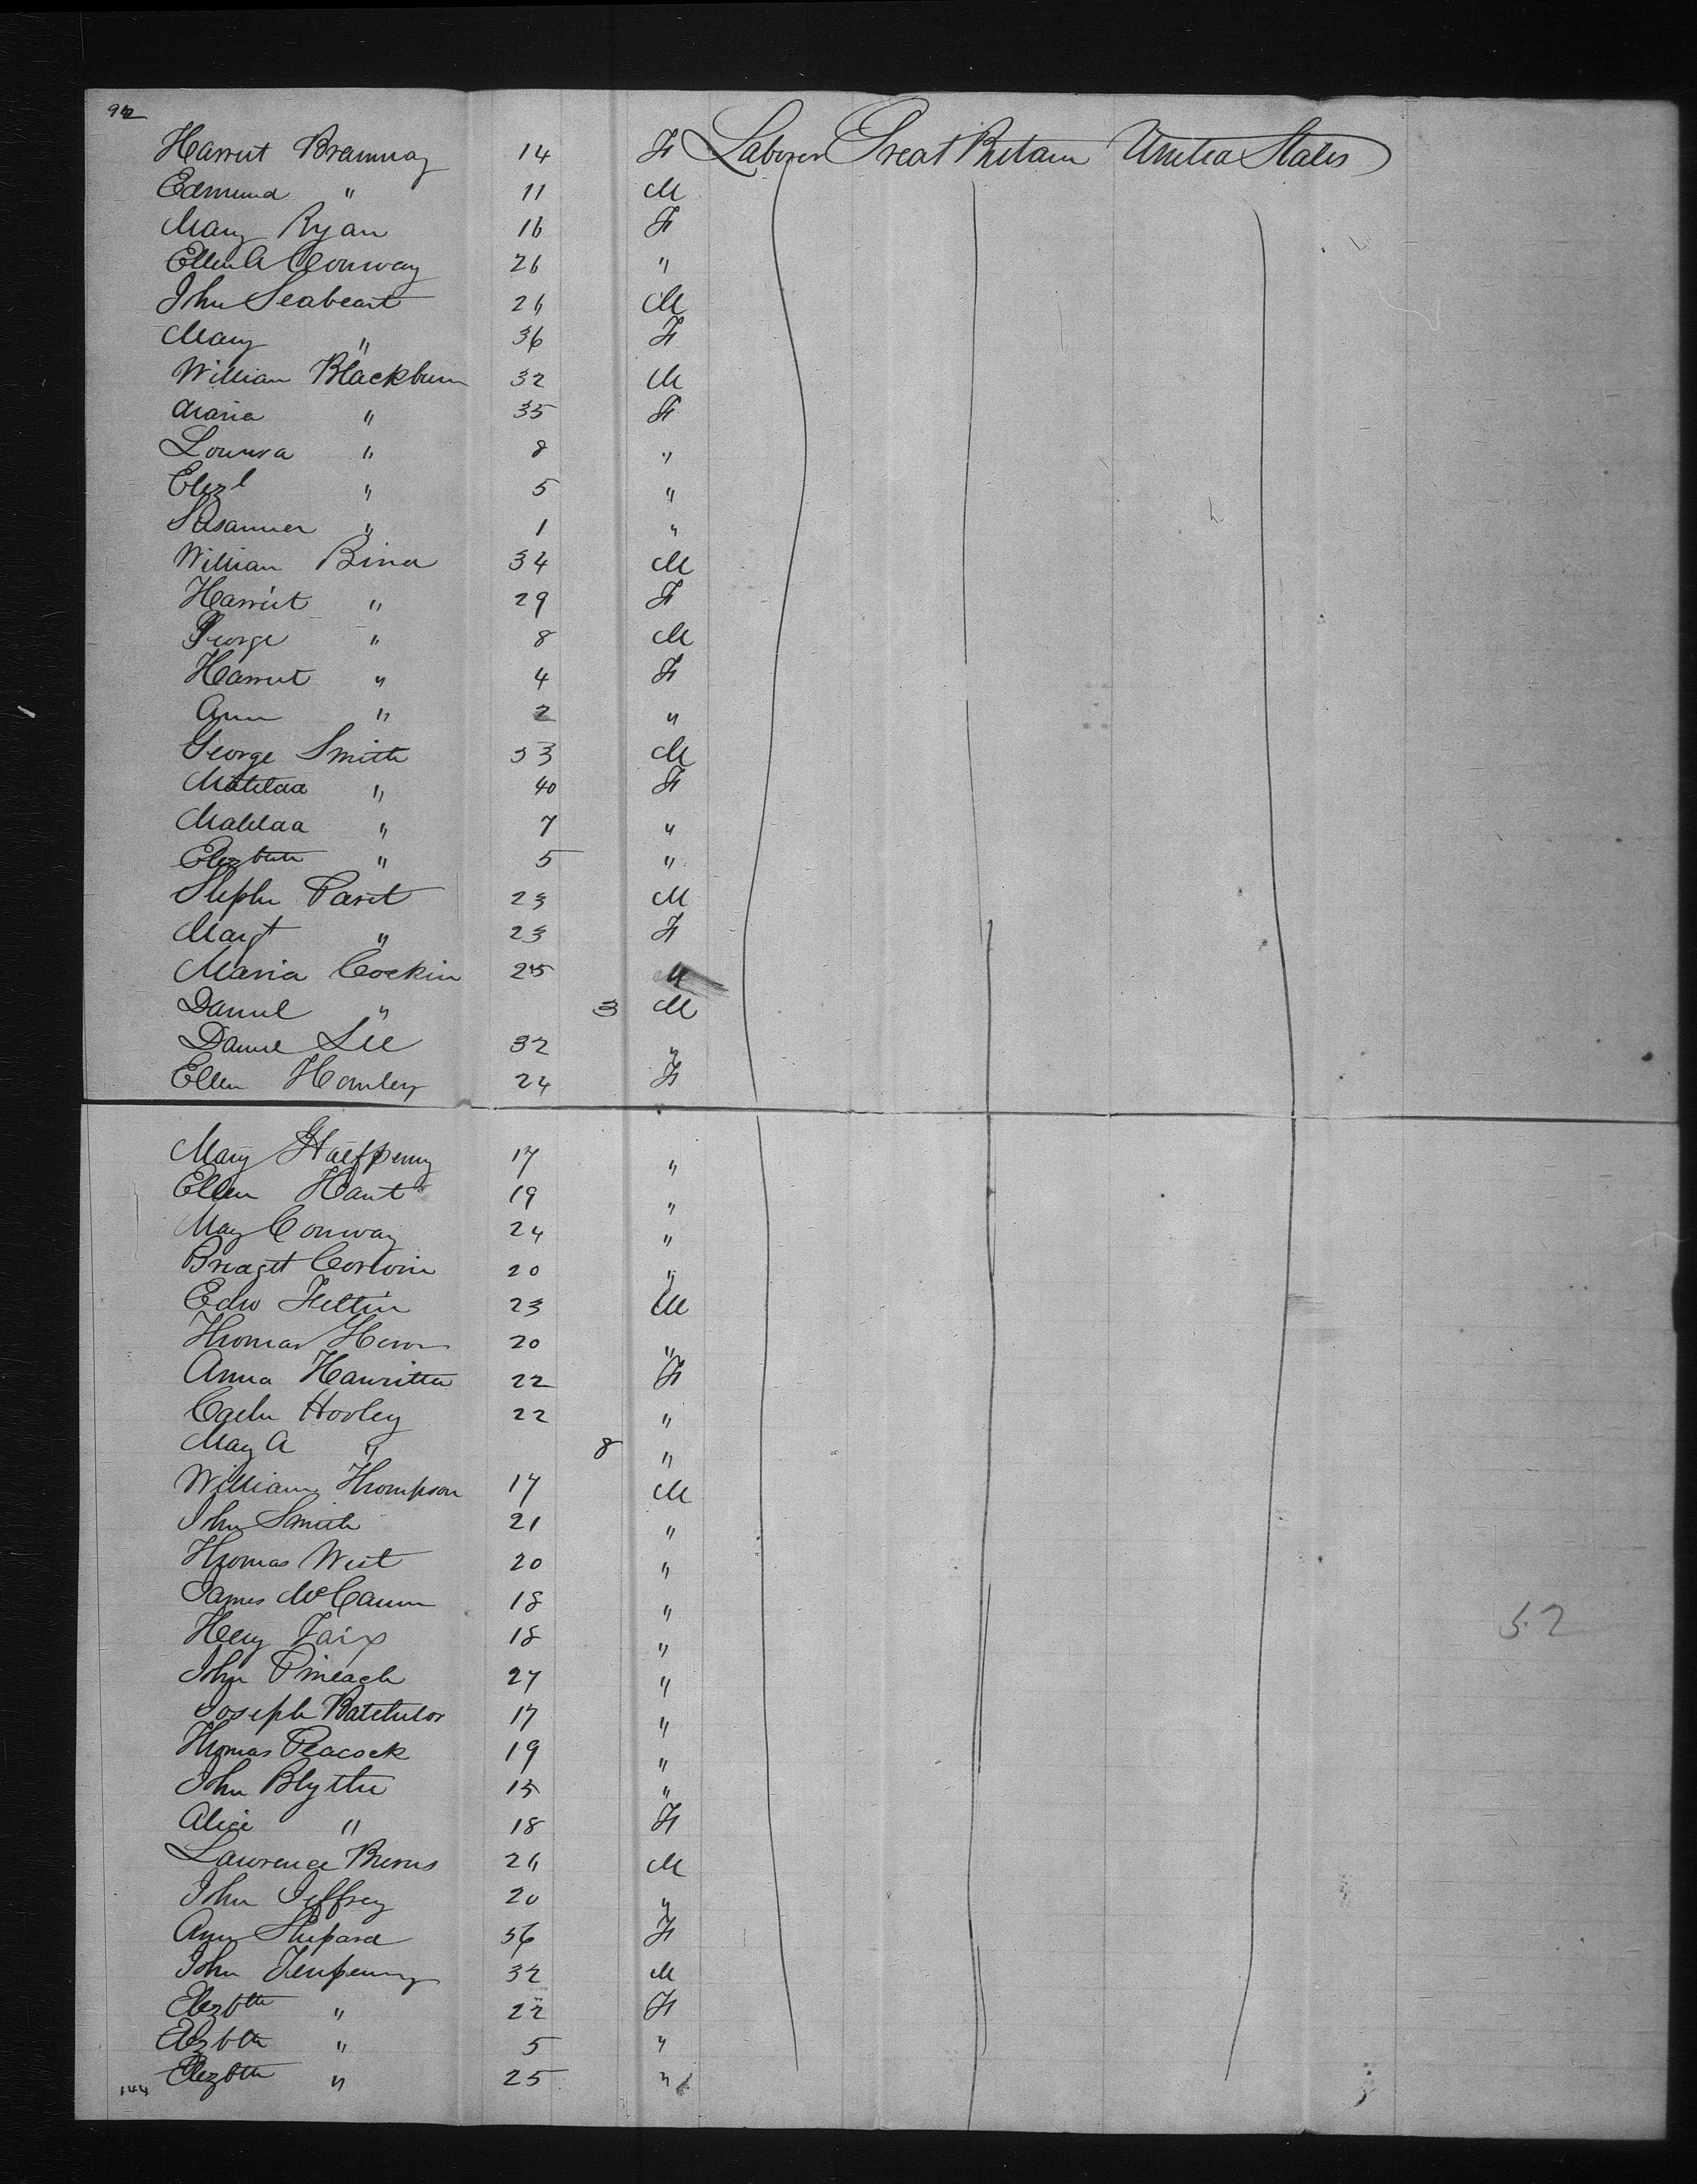 92
Harriet Bramway 14 F Laborer Great Britain United States
Edmund " 11 M
Mary Ryan 16 F
Ellen A Conway 26 "
John Seabeart 26 M
Mary " 36 F
William Blackburn 32 M
Maria " 35 F
Lourva " 8 "
Elizt " 5 "
Susanner " 1 "
William Bird 34 M
Harriet " 29 F
George " 8 M
Harriet " 4 F
Ann " 2 "
George Smith 53 M
Matilda " 40 F
Matilda " 7 "
Elizbeth " 5 "
Stephn Parit 23 M
Margt " 23 F
Maria Cockin 25 "
Daniel " 3 M
Daniel Lee 32 "
Ellen Hanley 24 F
Mary Halfpenny 17 "
Ellen Hant 19 "
May Conway 24 "
Bridgett Corwin 20 "
Edw Feltin 23 M
Thomas Heron 20 "
Anna Hawritten 22 F
Cath Hooley 22 "
May A " 8 "
William Thompson 17 M
John Smith 21 "
Thomas West 20 "
James McCann 18 "
Heny Faix 18 "
John Pineach 27 "
Joseph Batchelor 17 "
Thomas Peacock 19 "
John Blythe 15 "
Alice " 18 F
Lawrence Burns 26 M
John Jeffrey 20 "
Ann Shepard 56 F
John Tenpenny 32 M
Elezbth " 22 F
Elzbth " 5 "
Elezbth " 25 "
144
52